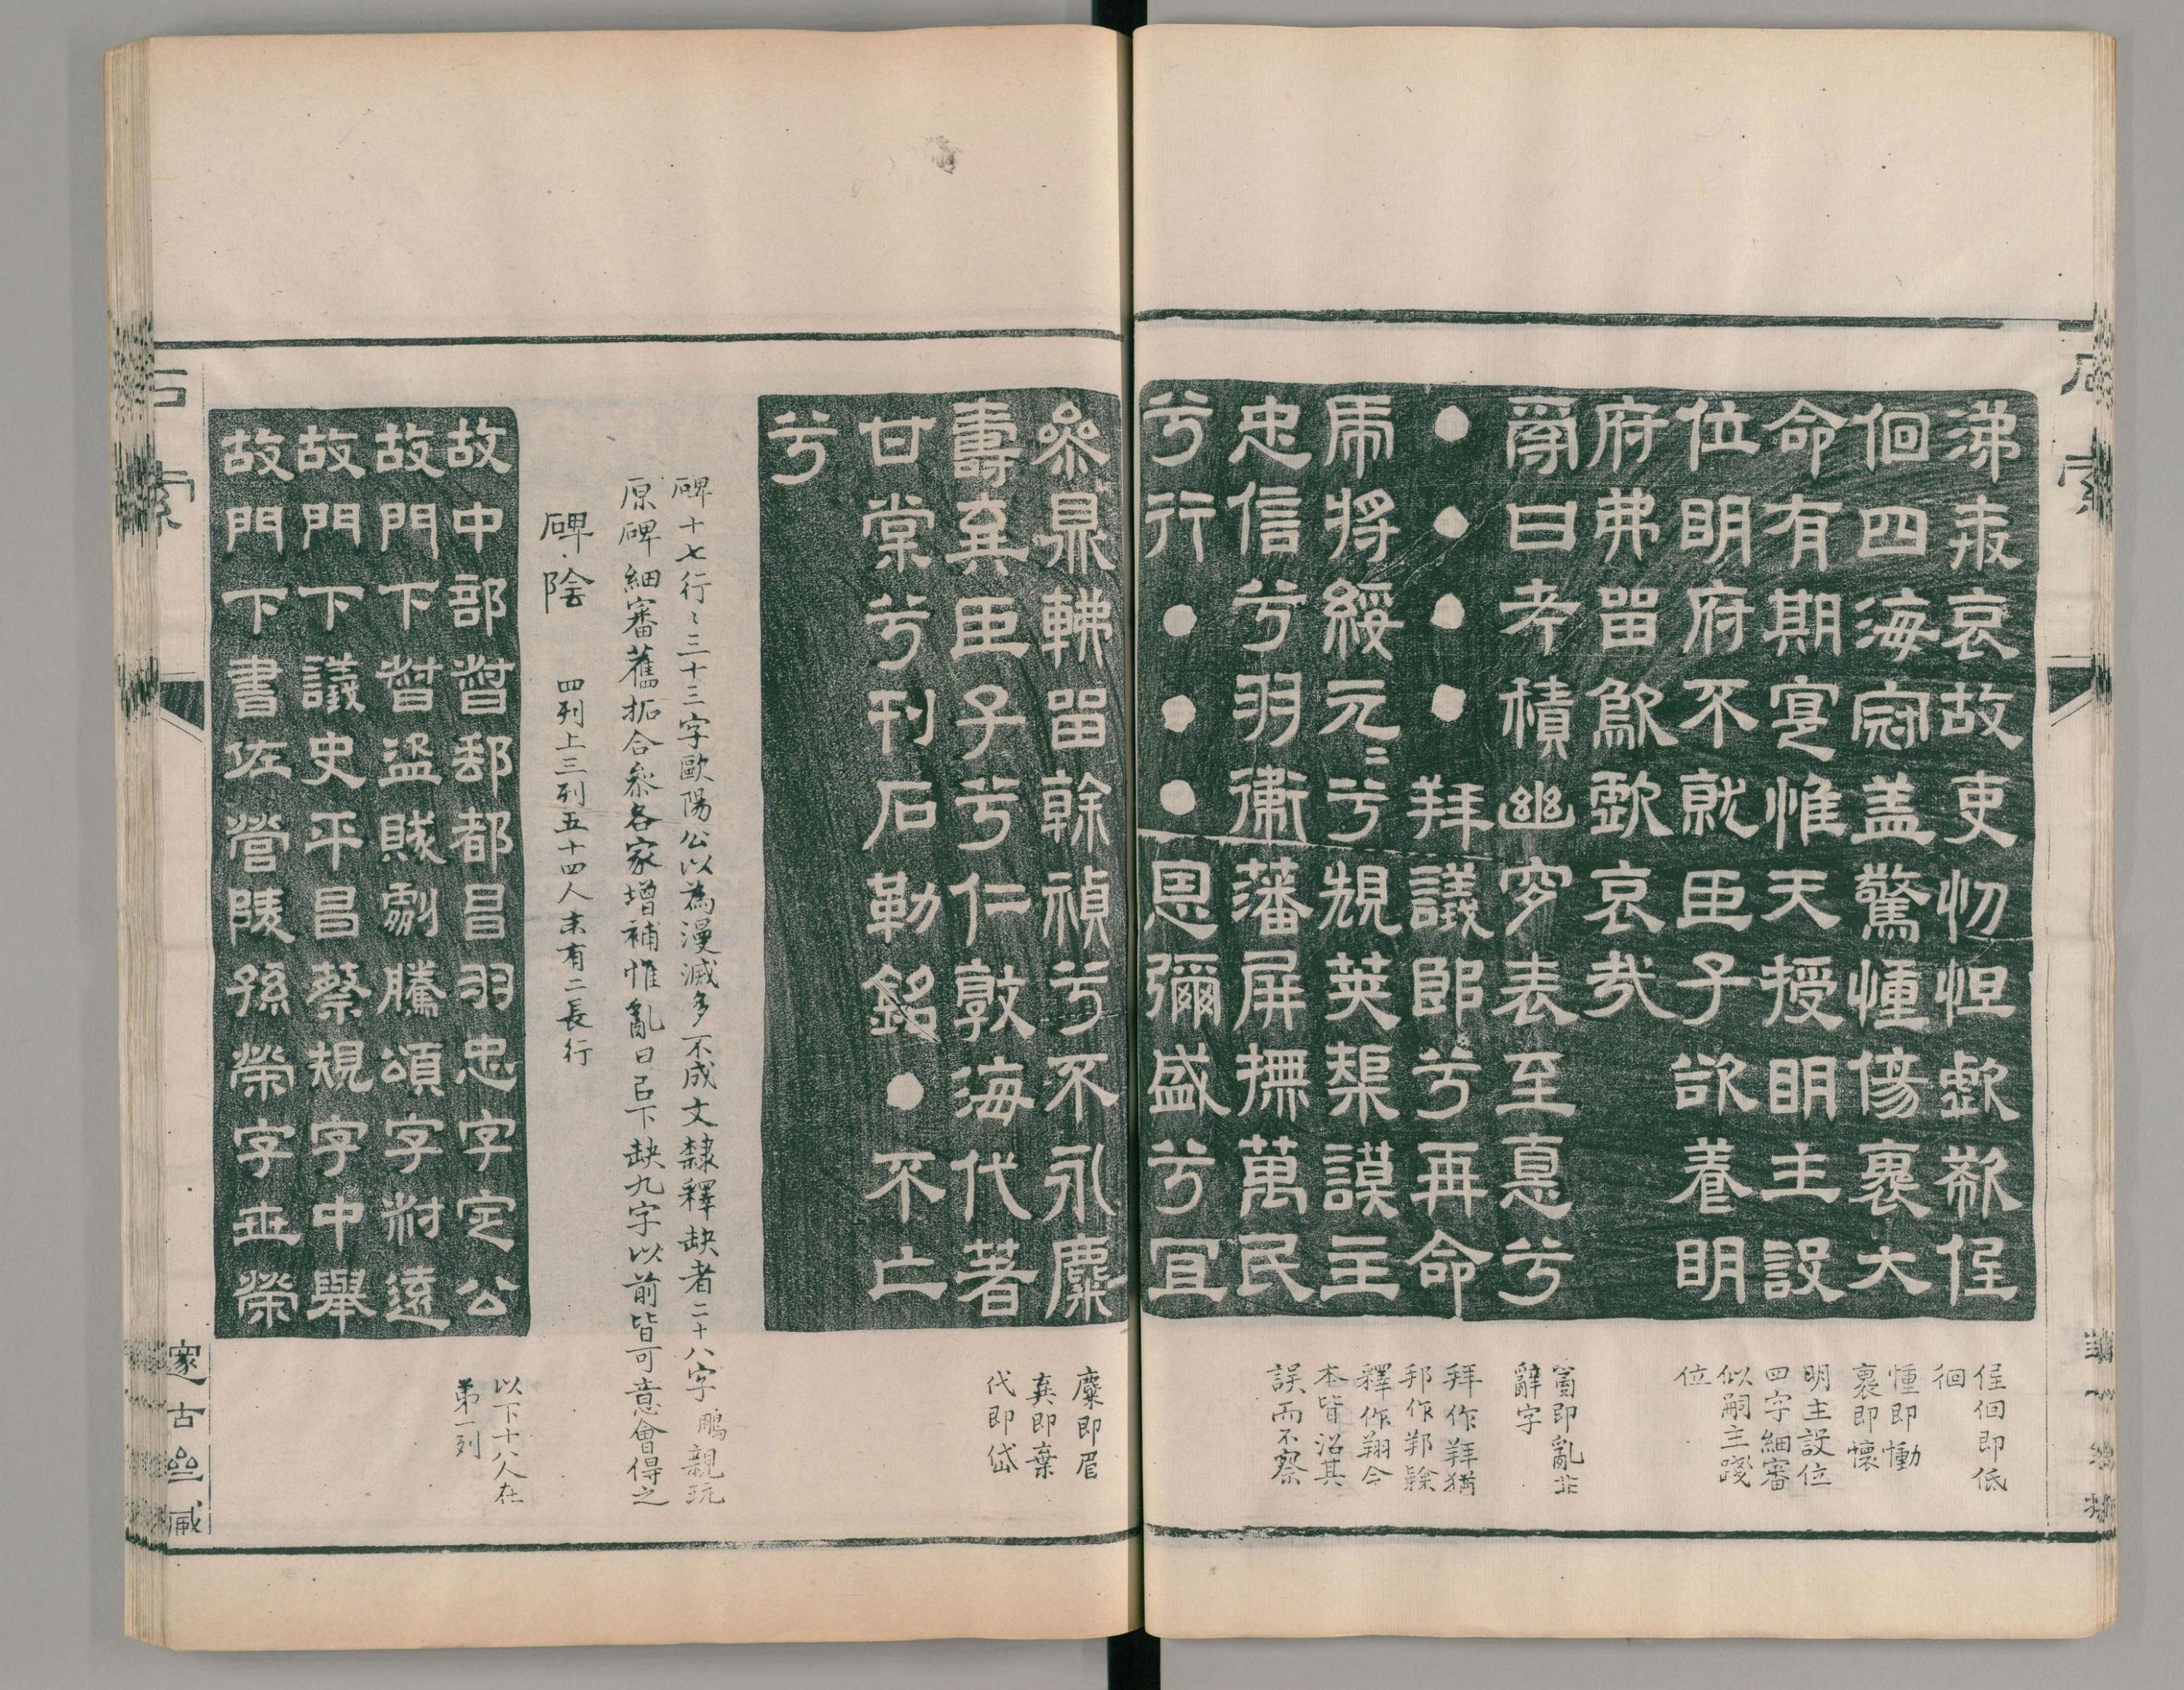 石索
沸泉哀故吏忉怛歔欷侄
佪四海冠盖驚慟傷褱大
命有期寔惟天授明主設
位明府不就臣子欲養明
府弗留歍歔哀哉
𤔔曰考積幽穸表至悳兮
●●●●拜議郎兮再命
虎將綏元二兮規英槼謨主
忠信兮羽衛藩屏撫萬民
兮行●●●恩彌盛兮宜
侄佪即低
徊
慟即慟
褱即懷
明主設位
四字細審
似嗣主踐
位
𤔔即亂非
辭字
拜作拜猶
邦作邦隸
釋作翔今
本皆沿其
誤而不察
參鼎軿留榦禎兮不永麋
壽棄臣子兮仁敦海代著
甘棠兮刊石勒銘●不亡
兮
麋即眉
棄即棄
代即岱
碑十七行〻三十三字歐陽公以為漫滅多不成文隸釋缺者二十八字鵬親玩
原碑細審舊拓合參各家增補惟亂曰已下缺九字以前皆可意會得之
碑陰
四列上三列五十四人末有二長行
故中部督郵都昌羽忠字定公
故門下督盜賊劇騰頌字叔遠
故門下議史平昌蔡規字中舉
故門下書佐營陵孫榮字並榮
以下十八人在
第一列
石索
邃古齋藏